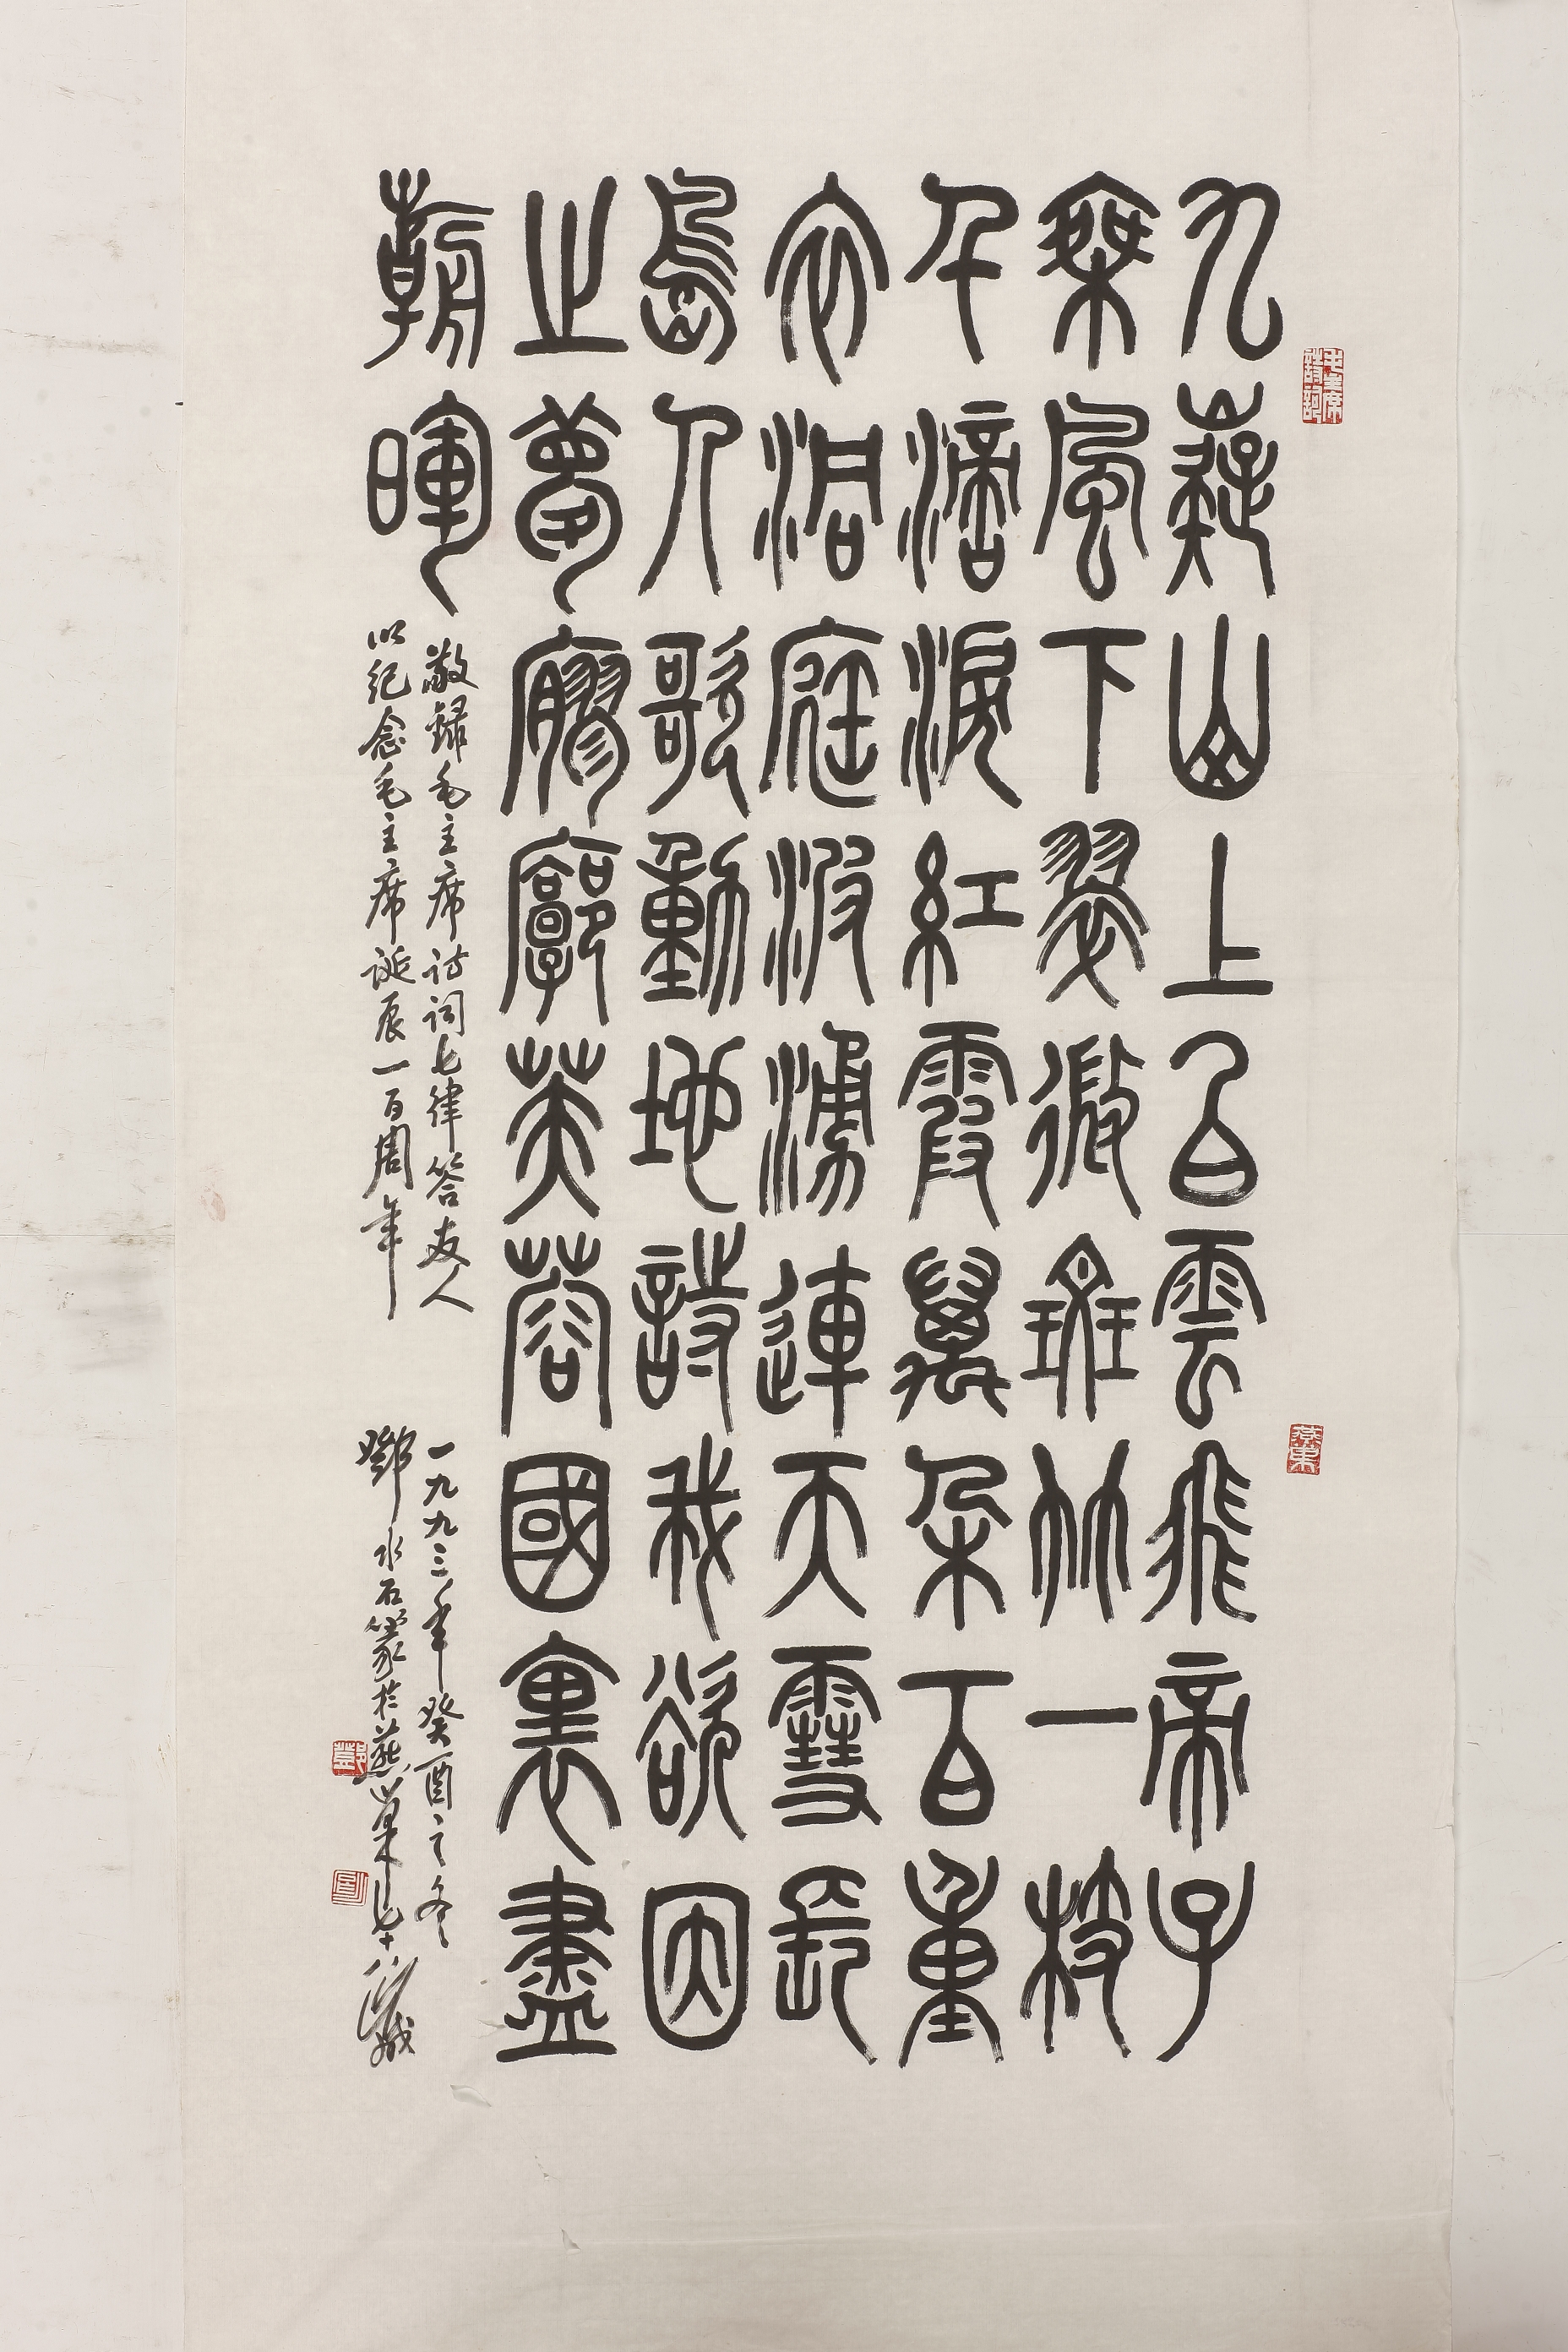 九嶷山上白雲飛帝子
乘風下翠微斑竹一枝
千滴淚紅霞萬朵百重
衣洞庭波涌連天雪長
島人歌動地詩我欲因
之夢寥廓芙蓉國裏盡
朝暉
敬録毛主席诗词七律答友人
以纪念毛主席诞辰一百周年
一九九三年癸酉之冬
鄧水石篆於燕巢七十八歲
毛主席詩詞
燕巢
鄧